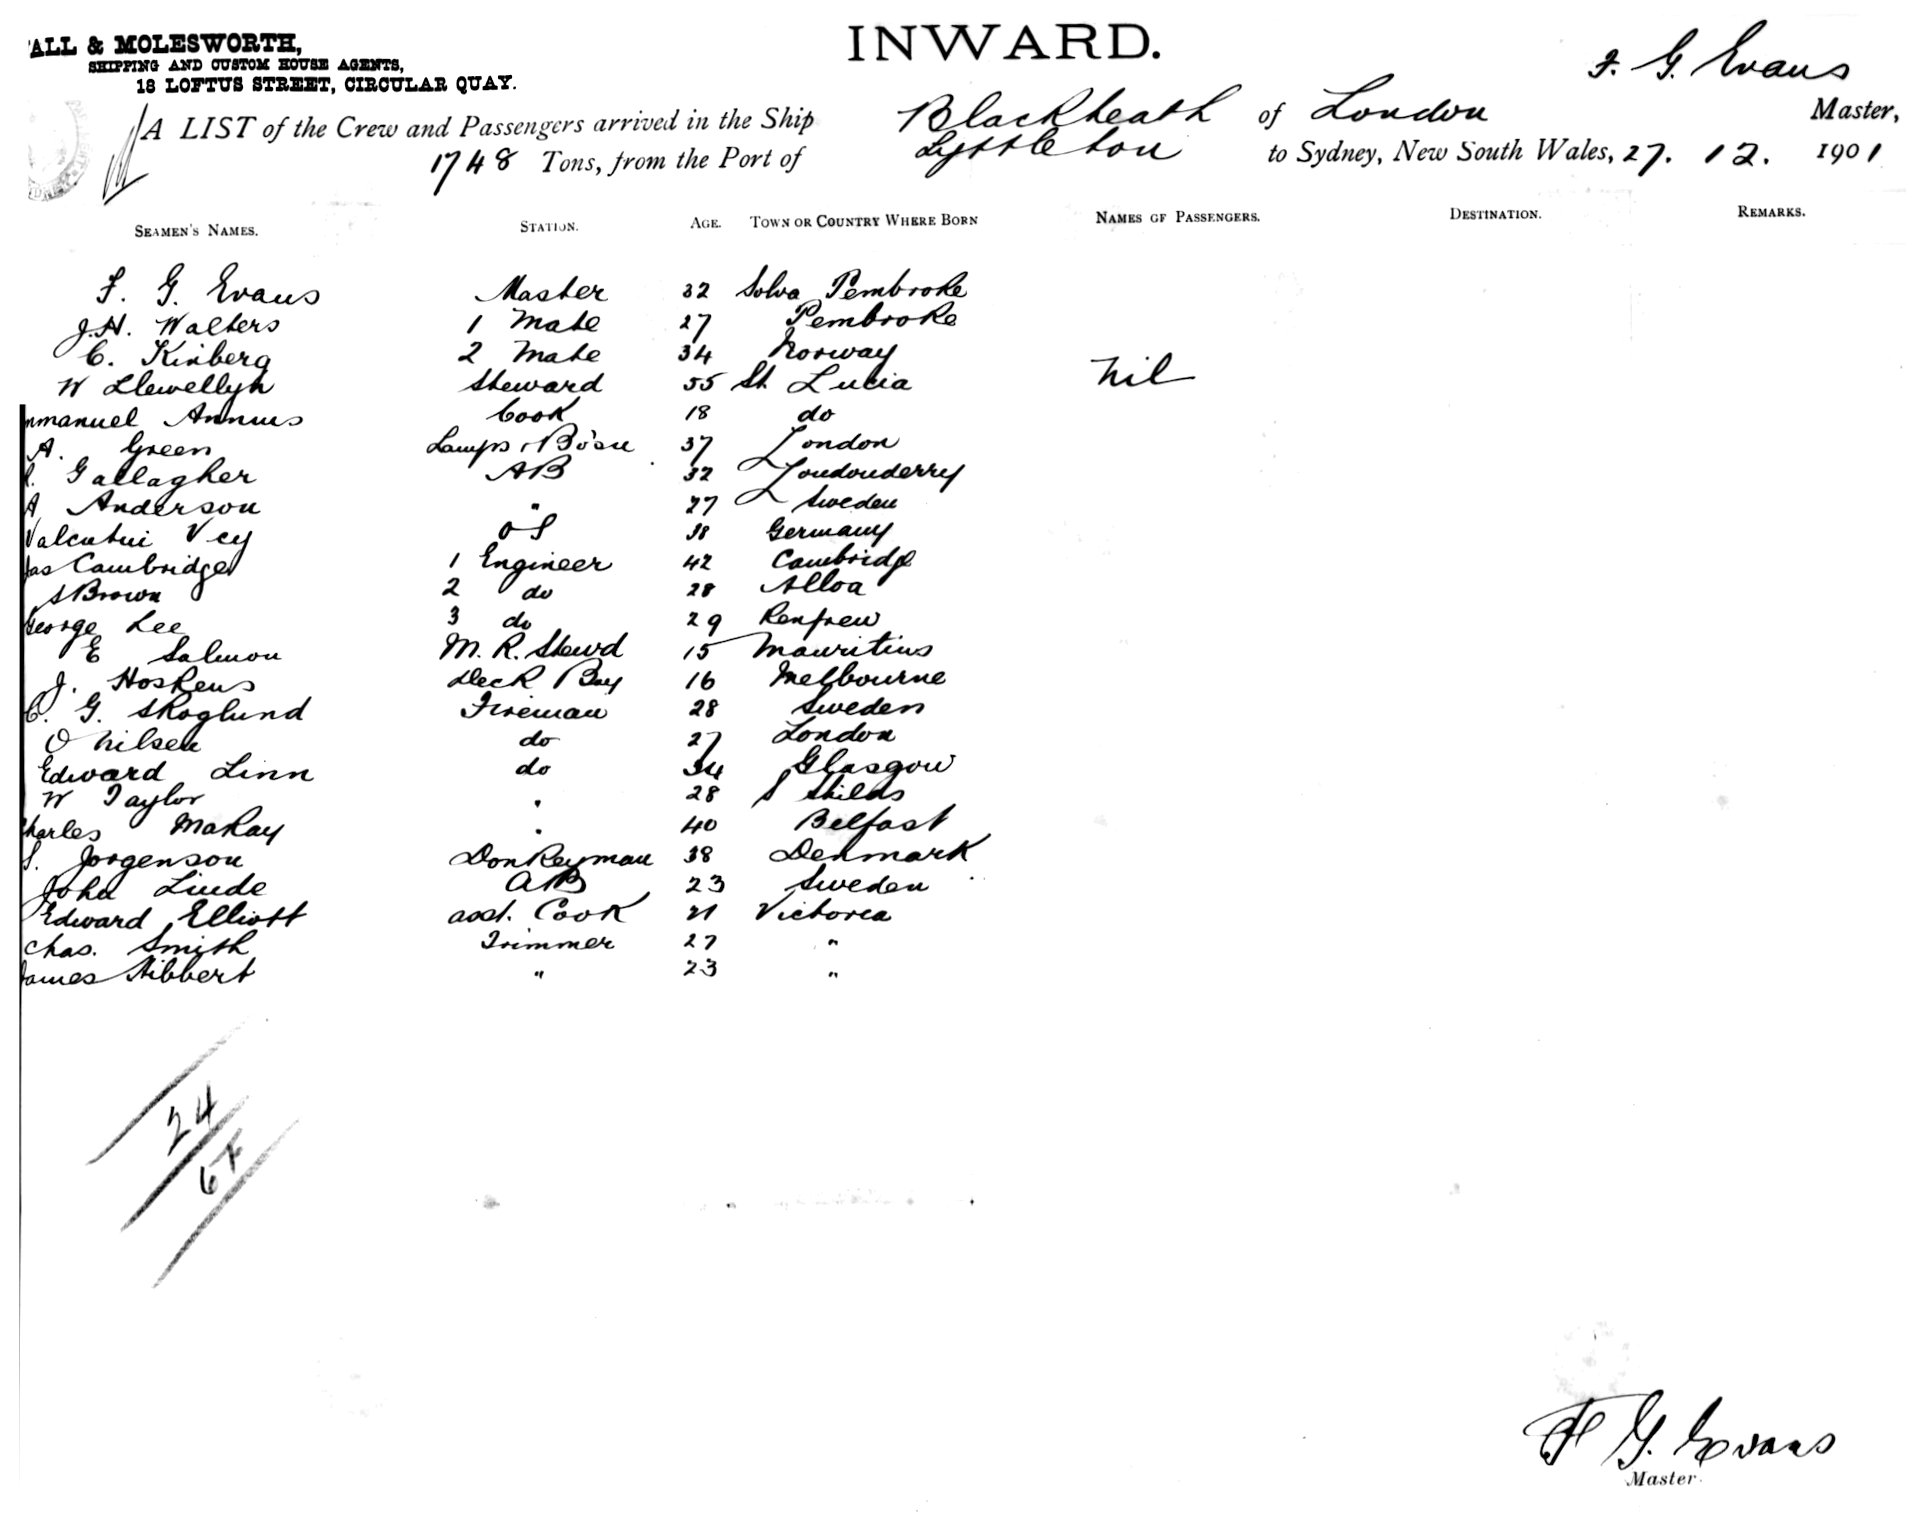 ALL & MOLESWORTH,
SHIPPING AND CUSTOM HOUSE AGENTS,
18 LOFTUS STREET, CIRCULAR QUAY.
INWARD.
F. G. Evans
A LIST of the Crew and Passengers arrived in the Ship Blackheath of London Master,
1748 Tons, from the Port of Lyttleton to Sydney, New South Wales, 27. 12. 1901
SEAMEN'S NAMES. STATION. AGE. TOWN OR COUNTRY WHERE BORN NAMES OF PASSENGERS. DESTINATION. REMARKS.
F. G. Evans Master 32 Solva Pembroke
J.H. Walters 1 Mate 27 Pembroke
C. Kinberg 2 Mate 34 Norway
Nil
W Llewellyn Steward 55 St Lucia
mmanuel Annius Cook 18 do
A. Green Lamps & Bosn 37 London
Gallagher AB 32 Londonderry
A Anderson " 27 Sweden
Valentin Vey OS 18 Germany
Jas Cambridge 1 Engineer 42 Cambridge
S Brown 2 do 28 Alloa
George Lee 3 do 29 Renfrew
E Salmon M. R. Stewd 15 Mauritius
J. Hoskens Deck Boy 16 Melbourne
C. G. Skoglund Fireman 28 Sweden
O Nilsen do 27 London
Edward Linn do 34 Glasgow
W Taylor " 28 S Shilds
Charles McKay " 40 Belfast
S. Jorgenson Donkeyman 38 Denmark
John Linde AB 23 Sweden
Edward Elliott asst. Cook 21 Victorea
Chas. Smith Trimmer 27 "
James Hibbert " 23 "
24
F G. Evans
Master.